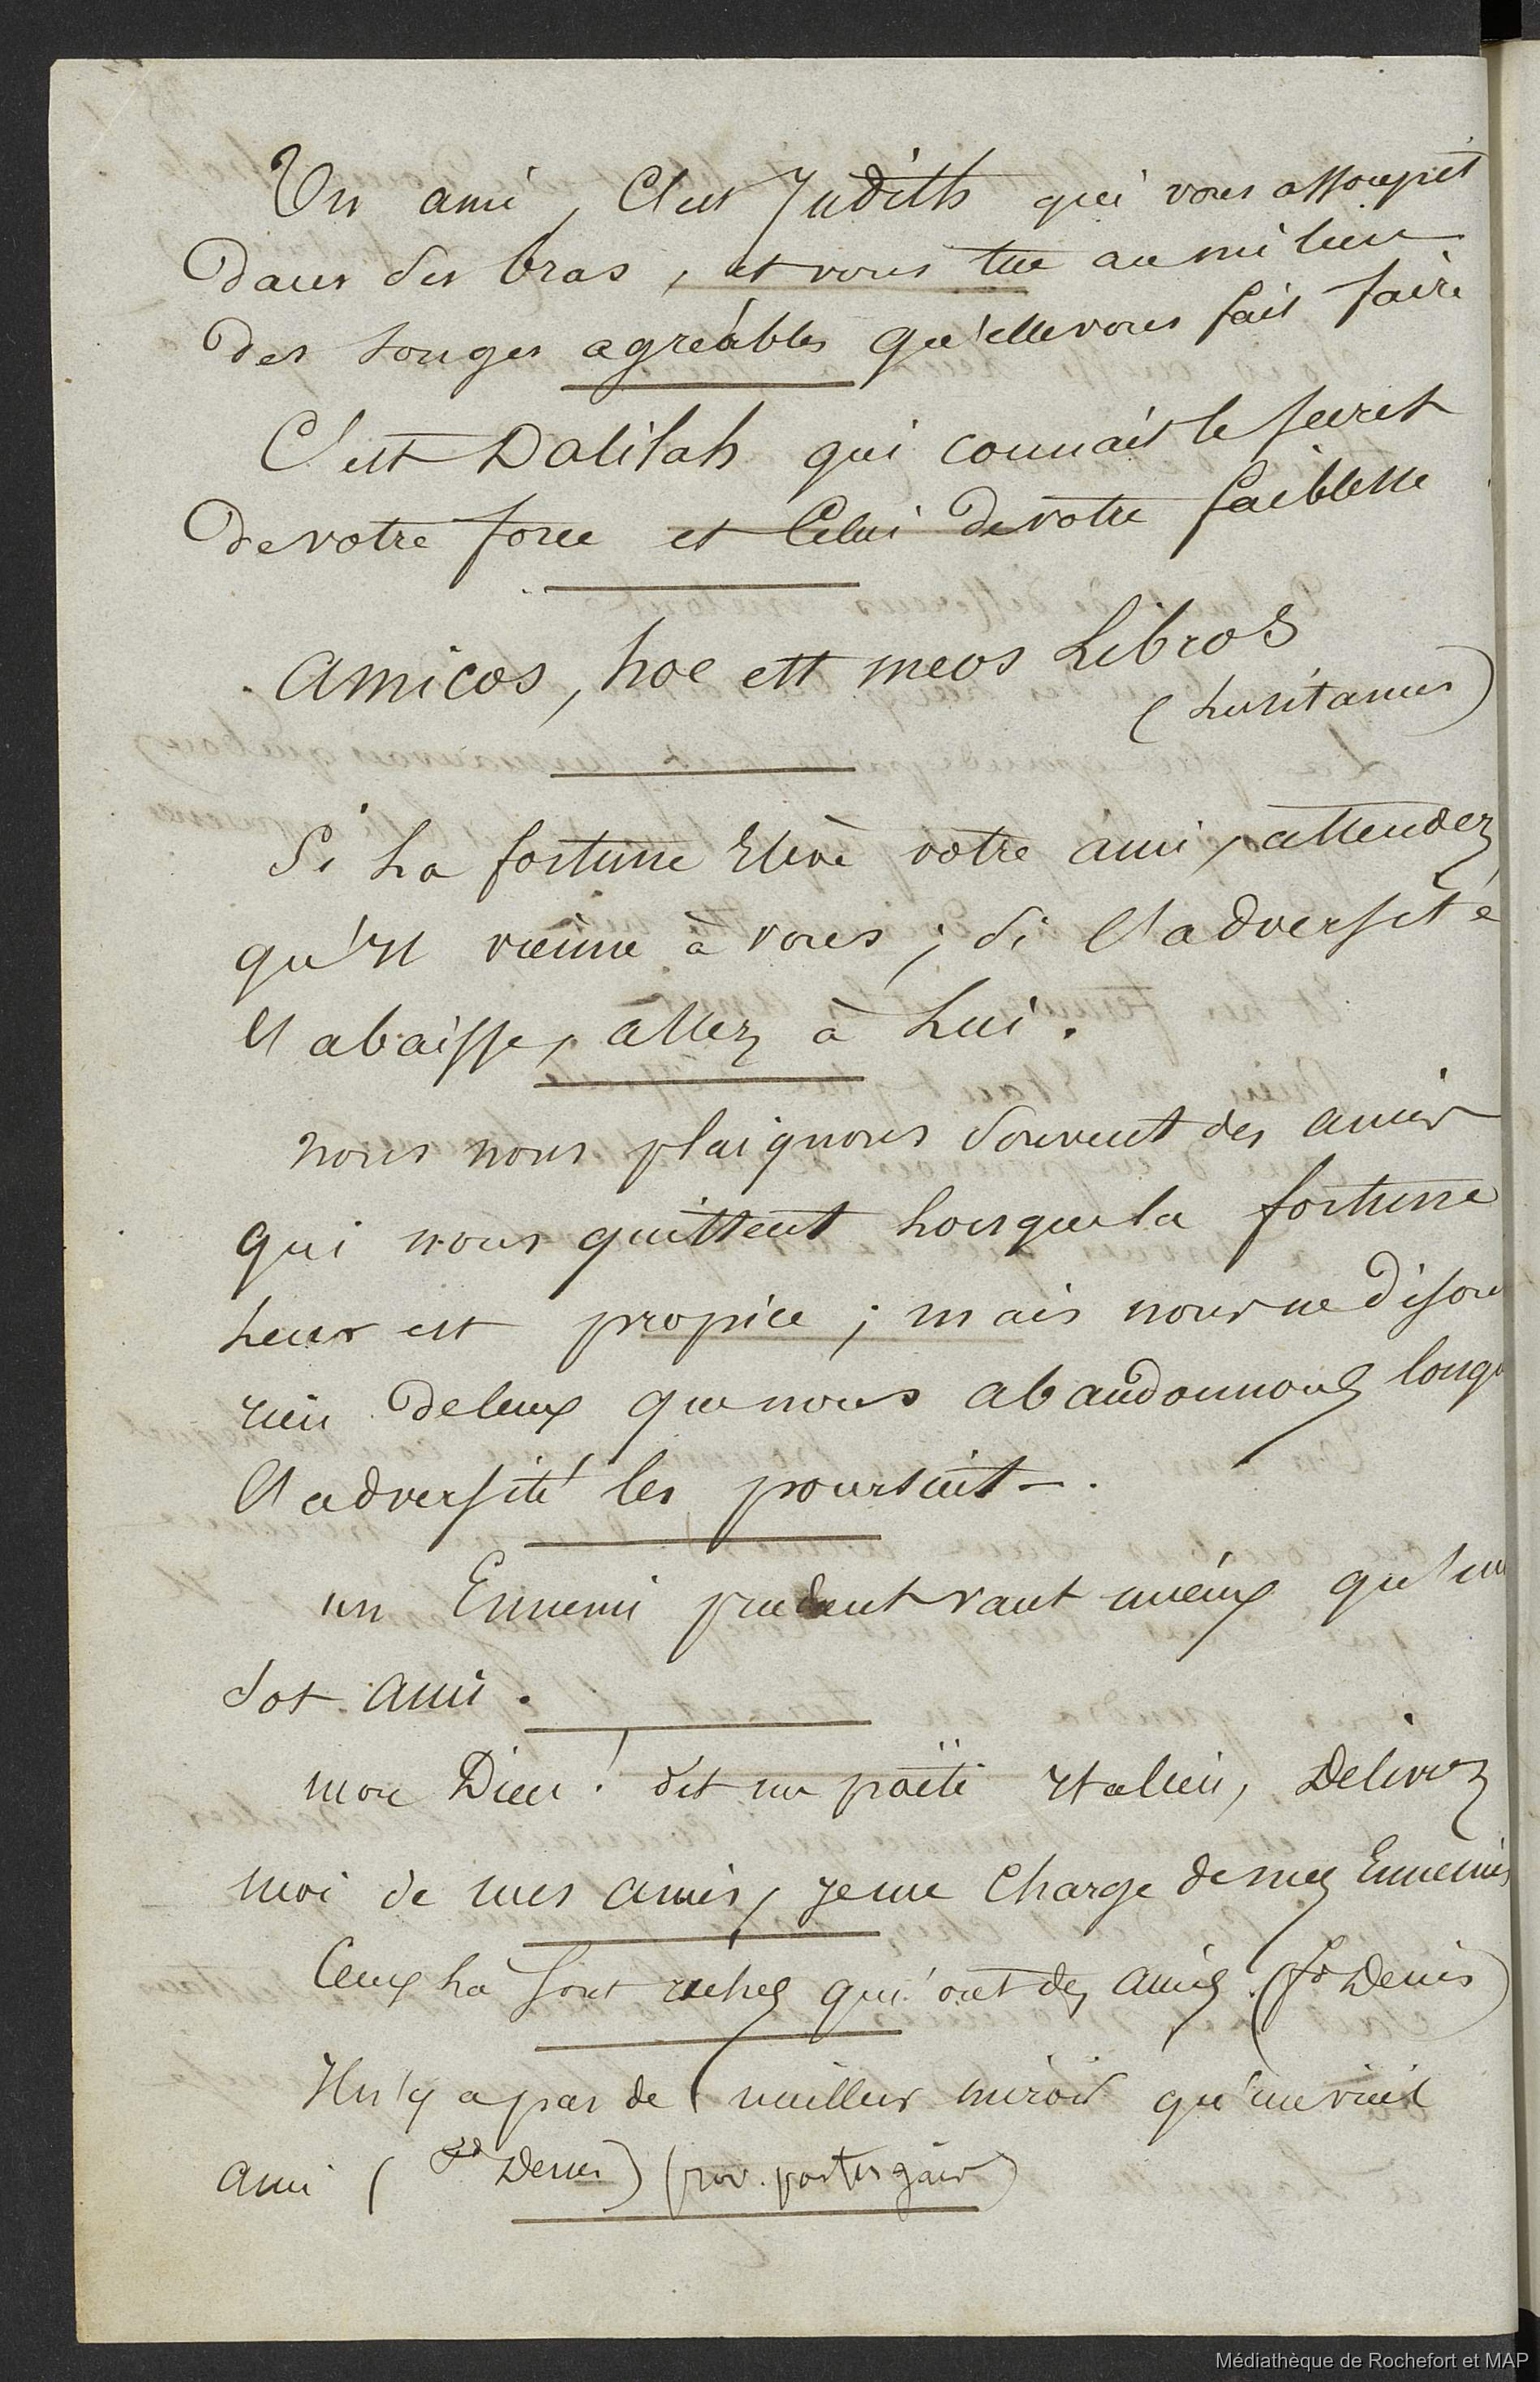 Un ami, C'est Judith qui vous assoupit
Dans ses bras, et vous tue au milieu
Des songes agréables qu'elle vous fait faire
C'est Dalilah qui connait le secret
De votre force et Celui de votre faiblesse
Amicos, hoc est meos Libros
(Lusitanus)
Si La fortune Elève votre ami, attendez
qu'Il vienne à vous ; si l'adversité
l'abaisse, allez à Lui.
nous nous plaignons souvent des amis
qui nous quittent Lorsque la fortune
Leur est propice ; mais nous ne disons
rien de ceux que nous abandonnons
l'adversité les poursuit.
un Ennemi prudent vaut mieux qu'un
sot ami.
mon Dieu ! dit un poëte Italien, Delivrez
moi de mes amis, Je me Charge de mes Ennemis
Ceux Là sont riches qui ont des amis (fd Denis)
Il n'y a pas de meilleur miroir qu'un vieil
ami (fd Denis) (prov. portugais)
Médiathèque de Rochefort et MAP